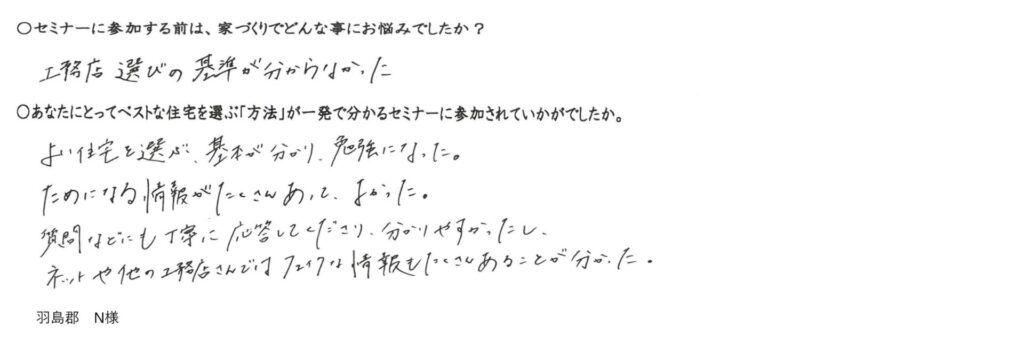 ○セミナーに参加する前は、家づくりでどんな事にお悩みでしたか？
工務店選びの基準が分からなかった
○あなたにとってベストな住宅を選ぶ「方法」が一発で分かるセミナーに参加されていかがでしたか。
よい住宅を選ぶ、基本が分かり、勉強になった。
ためになる情報がたくさんあって、よかった。
質問などにも丁寧に応答してくださり、分かりやすかったし、
ネットや他の工務店さんではフェイクな情報もたくさんあることが分かった。
羽島郡　N様